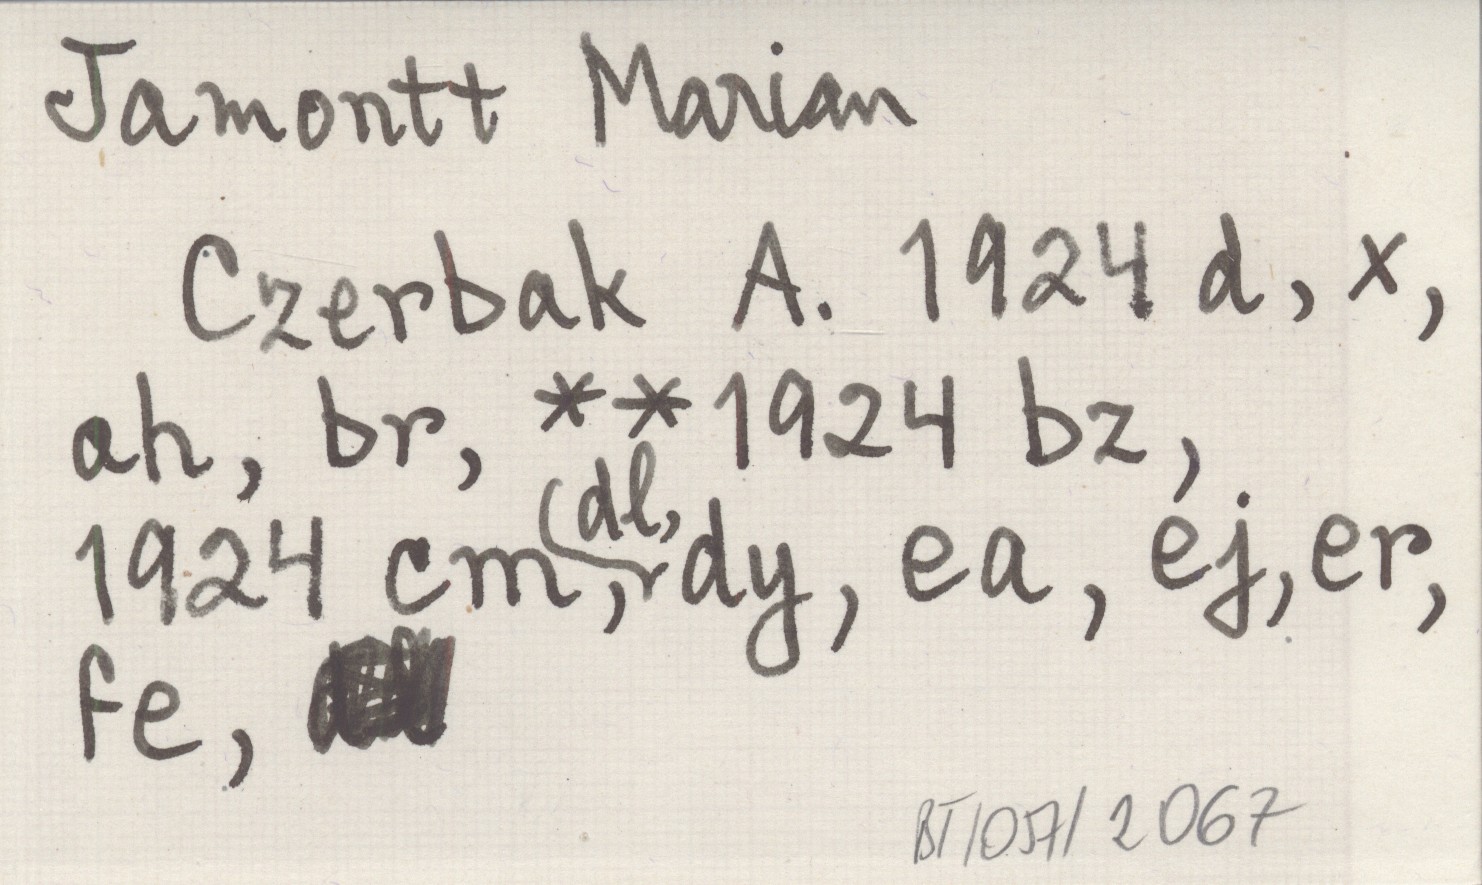 Jamontt Marian
Czerbak A. 1924 d, x,
ah, br, **1924 bz,
1924 cm, dl, dy, ea, ej, er,
fe,
BT/057/2067